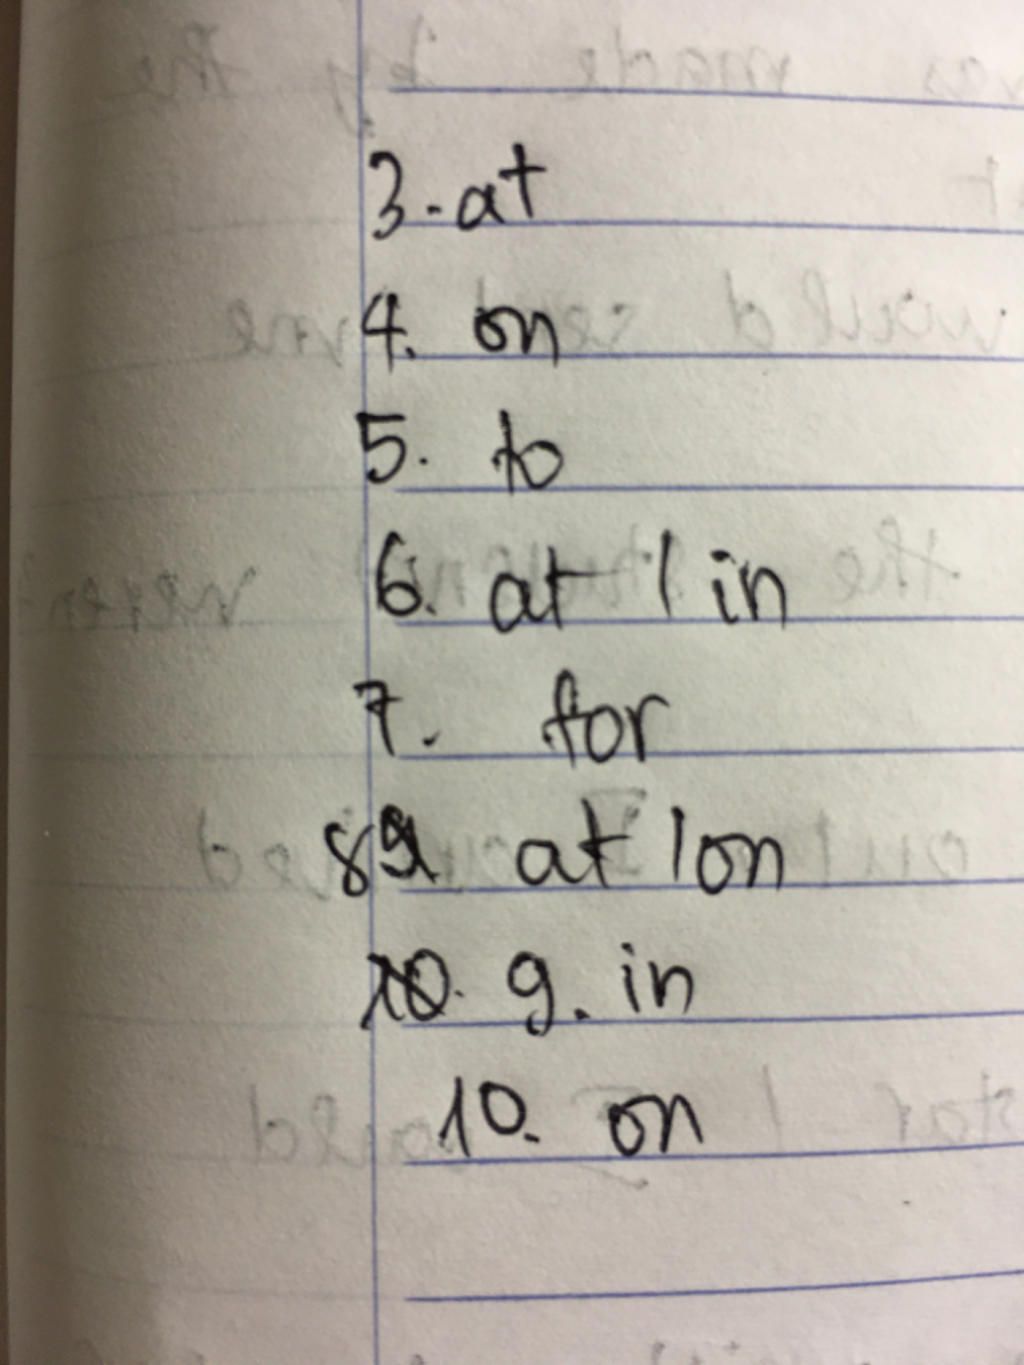 3. at
4. on
5. to
6. at / in
7. for
8 at / on
9. in
10. on